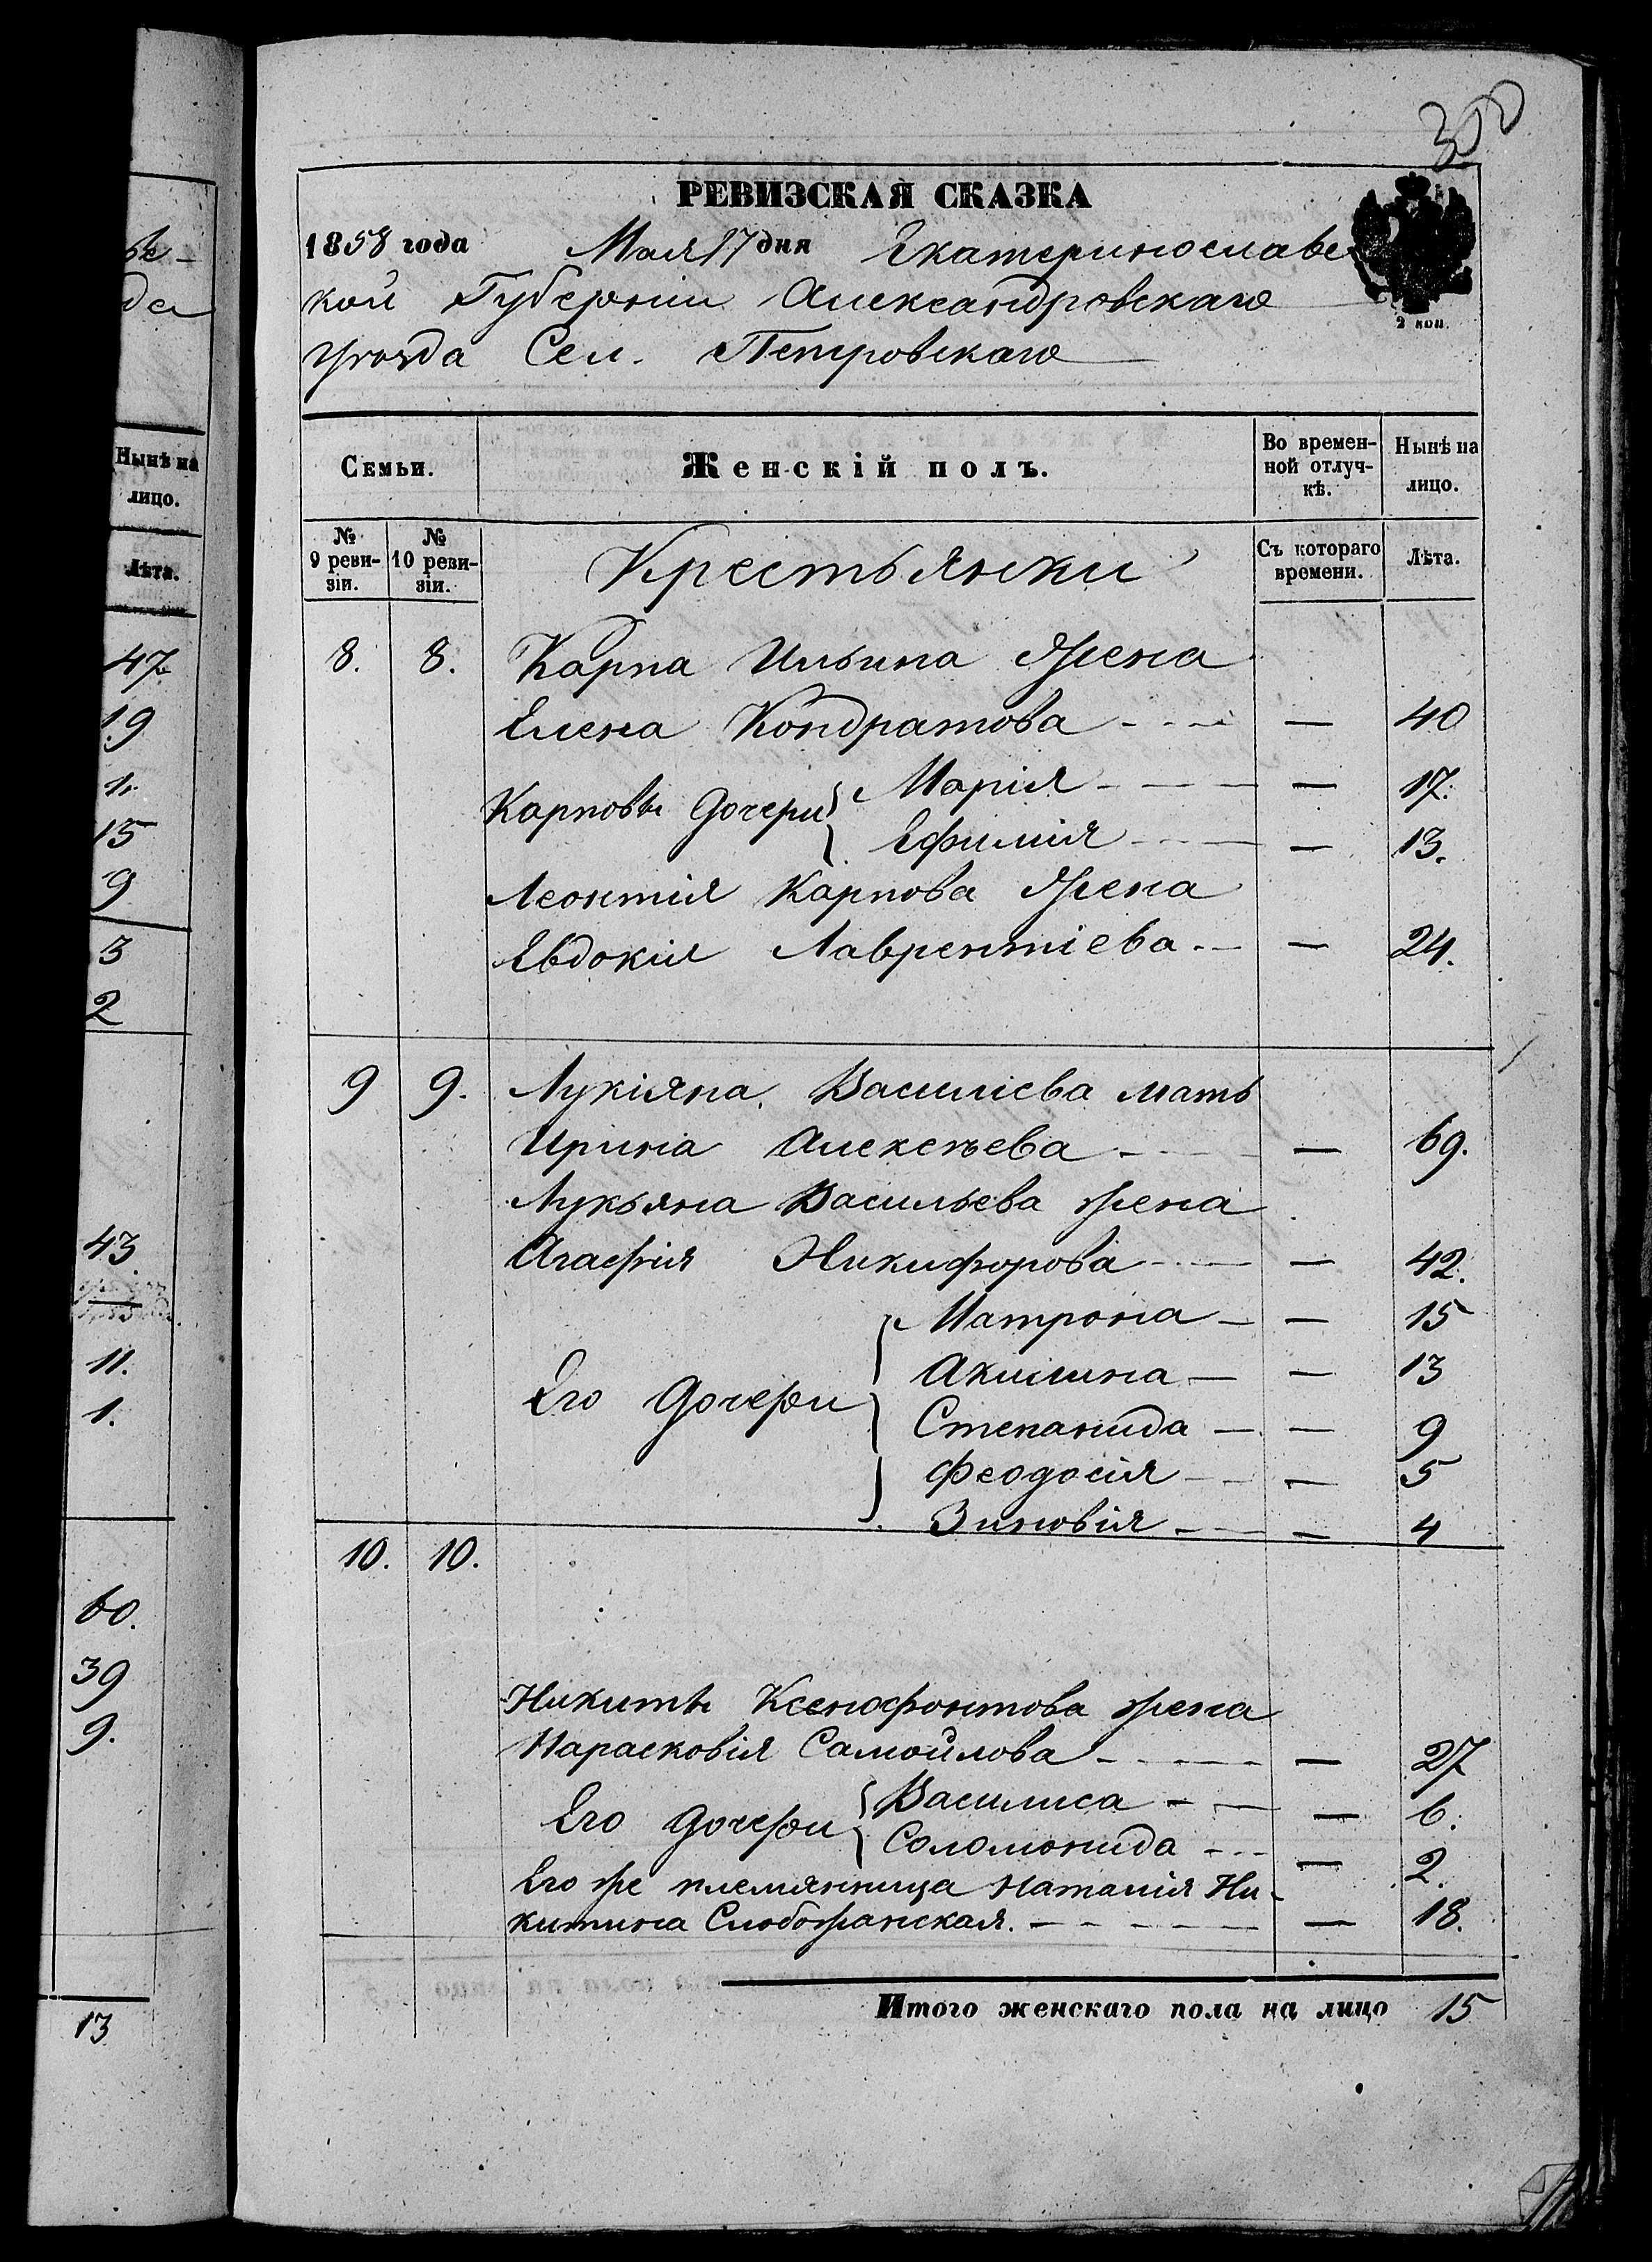 ѣ-
да
Нынѣ на
лицо.
Лѣта.
47
19
1.
15
9
3
2
43
11.
1.
60.
39
9.
13
300
РЕВИЗСКАЯ СКАЗКА
1858 года Мая 17 дня Екатеринославс
кой Губерніи Александровскаго
уѣзда Сел. Петровскаго
2 коп.
Семьи. Женскій полъ. Во времен-ной отлуч-кѣ. Нынѣ на лицо.
№ 9 реви-зіи. № 10 реви-зіи. Крестьянки Съ котораго времени. Лѣта.
8. 8. Карпа Ильина жена
Елена Кондратова - - - — 40
Карповы дочери { Марія - - - — 17.
Ефимія - - - — 13.
Леонтія Карпова жена
Евдокія Лаврентіева - - — 24.
9 9. Лукіяна Василіева мать
Ирина Алексѣева - - - — 69.
Лукьяна Васильева жена
Агафія Никифорова - - — 42.
Его дочери { Матрона — — 15
Акилина — — 13
Степанида — — 9
Феодосія — — 5
Зиновія — — 4
10. 10.
Никиты Ксенофонтова жена
Парасковія Самойлова - - - — 27
Его дочери { Василиса - — — 6.
Соломонида - - - — 2.
Его же племянница Наталія Ни-
китина Слобожанская. - - - — 18.
Итого женскаго пола на лицо 15